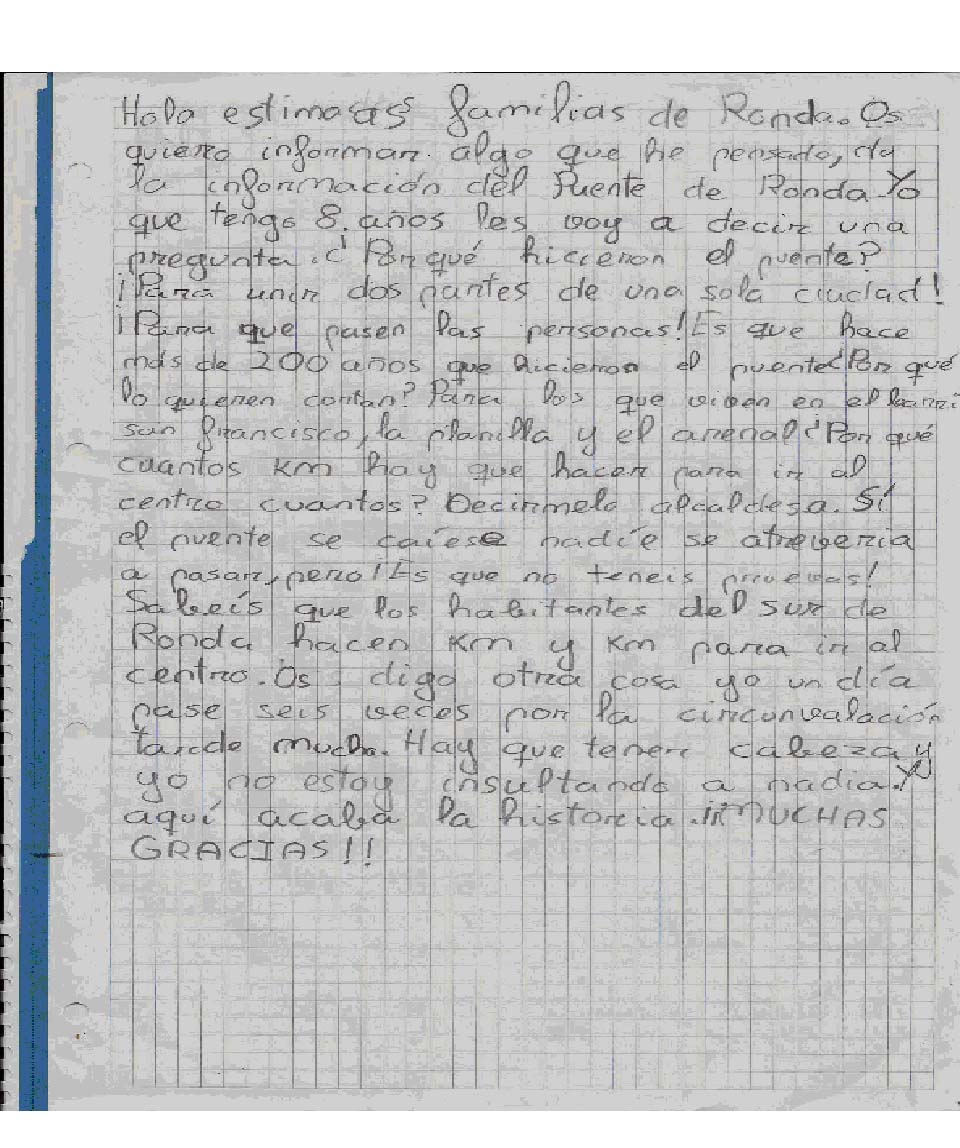 Hola estimadas familias de Ronda. Os
quiero informar algo que he pensado, da
la información del Puente de Ronda. Yo
que tengo 8 años les voy a decir una
pregunta. ¿Por qué hicieron el puente?
¡Para unir dos partes de una sola ciudad!
¡Para que pasen las personas! Es que hace
más de 200 años que hicieron el puente ¿Por qué
lo quieren cortar? Para los que viven en el barri
san francisco, la planilla y el arenal ¿Por qué
cuantos km hay que hacer para ir al
centro cuantos? Decirmelo alcaldesa. Sí
el puente se caíese nadíe se atreveria
a pasar, pero! Es que no teneis pruevas!
Sabeís que los habitantes del sur de
Ronda hacen km y km para ir al
centro. Os digo otra cosa yo un día
pase seis veces por la circunvalación
tarde mucho. Hay que tener cabeza y
yo no estoy insultando a nadia. Y
aquí acaba la historia. ¡¡MUCHAS
GRACIAS!!